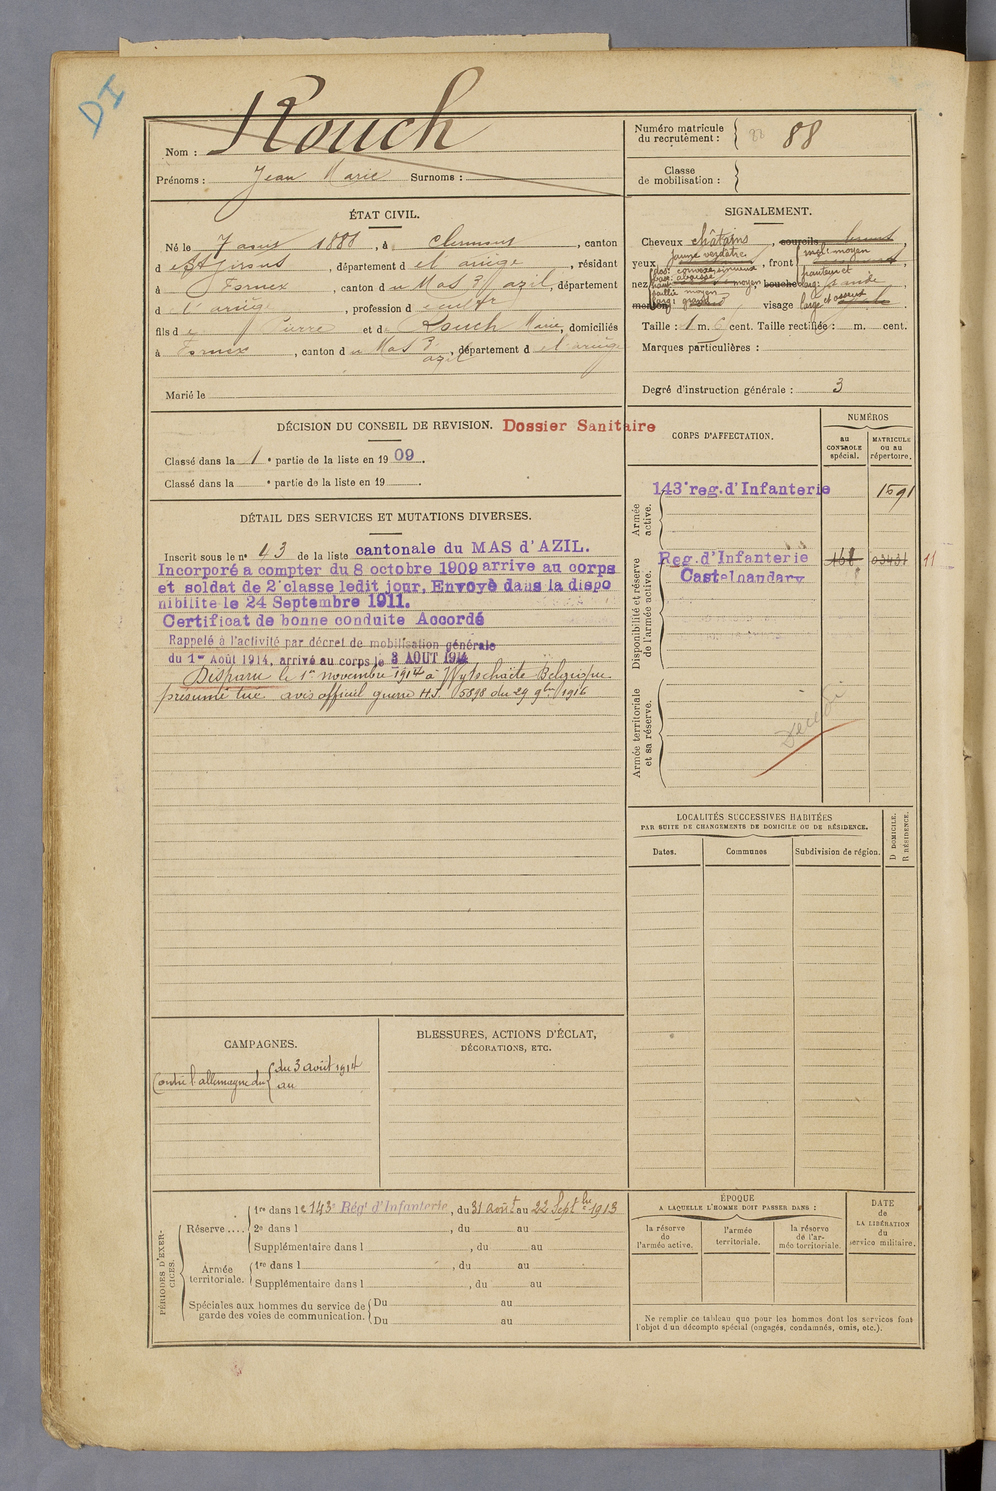 DI
Nom : Rouch
Prénoms : Jean Marie Surnoms :
Numéro matricule
du recrutement : 88 88
Classe
de mobilisation :
ÉTAT CIVIL.
Né le 7 aout 1888, à Clermont, canton
d e St Girons, département d e l'ariège, résidant
à Fornex, canton d u Mas d'azil, département
d l'ariège, profession d cultr
fils d e Pierre et d e Rouch Marie, domiciliés
à Fornex, canton d u Mas d' azil, département d e l'ariège
Marié le
SIGNALEMENT.
Cheveux châtains, sourcils bruns,
yeux jaune verdâtre, front incl: moyen
hauteur et
dos: convexe sinueux
base: abaissé
nez haut: moyen bouche larg: grande
saillie moyen
larg: grand
menton visage large et osseux
Taille : 1 m. 6 cent. Taille rectifiée : m. cent.
Marques particulières :
Degré d'instruction générale : 3
DÉCISION DU CONSEIL DE REVISION. Dossier Sanitaire
Classé dans la 1e partie de la liste en 1909.
Classé dans la e partie de la liste en 19
CORPS D'AFFECTATION.
NUMÉROS
au
CONTROLE
spécial.
MATRICULE
ou au
répertoire.
Armée
active.
143e reg. d'Infanterie 1591
Disponibilité et réserve
de l'armée active.
Reg. d'Infanterie 168 03431 11
Castelnaudary
Armée territoriale
et sa réserve.
DÉTAIL DES SERVICES ET MUTATIONS DIVERSES.
Inscrit sous le n° 43 de la liste cantonale du MAS d'AZIL.
Incorporé a compter du 8 octobre 1909 arrive au corps
et soldat de 2e classe ledit jour, Envoyé dans la dispo
nibilité le 24 Septembre 1911.
Certificat de bonne conduite Accordé
Rappelé à l'activité par décret de mobilisation générale
du 1er Août 1914, arrivé au corps le 3 AOUT 1914
Disparu le 1er novembre 1914 à Wytschaëte Belgique
présumé tué avis officiel guerre H.J. 15898 du 29 9bre 1916
LOCALITÉS SUCCESSIVES HABITÉES
PAR SUITE DE CHANGEMENTS DE DOMICILE OU DE RÉSIDENCE.
Dates.
Communes
Subdivision de région.
D DOMICILE.
R RÉSIDENCE.
CAMPAGNES.
Contre l'allemagne du du 3 août 1914
au
BLESSURES, ACTIONS D'ÉCLAT,
DÉCORATIONS, ETC.
PÉRIODES D'EXER-
CICES.
Réserve .... 1re dans le 143e Régt d'Infanterie, du 31 août au 22 Septbre 1913
2e dans l , du au
Supplémentaire dans l , du au
Armée
territoriale. 1re dans l , du au
Supplémentaire dans l , du au
Spéciales aux hommes du service de
garde des voies de communication.
Du au
Du au
ÉPOQUE
A LAQUELLE L'HOMME DOIT PASSER DANS :
la réserve
de
l'armée active.
l'armée
territoriale.
la réserve
de l'ar-
mée territoriale.
DATE
de
LA LIBÉRATION
du
service militaire.
Ne remplir ce tableau que pour les hommes dont les services font
l'objet d'un décompte spécial (engagés, condamnés, omis, etc.).